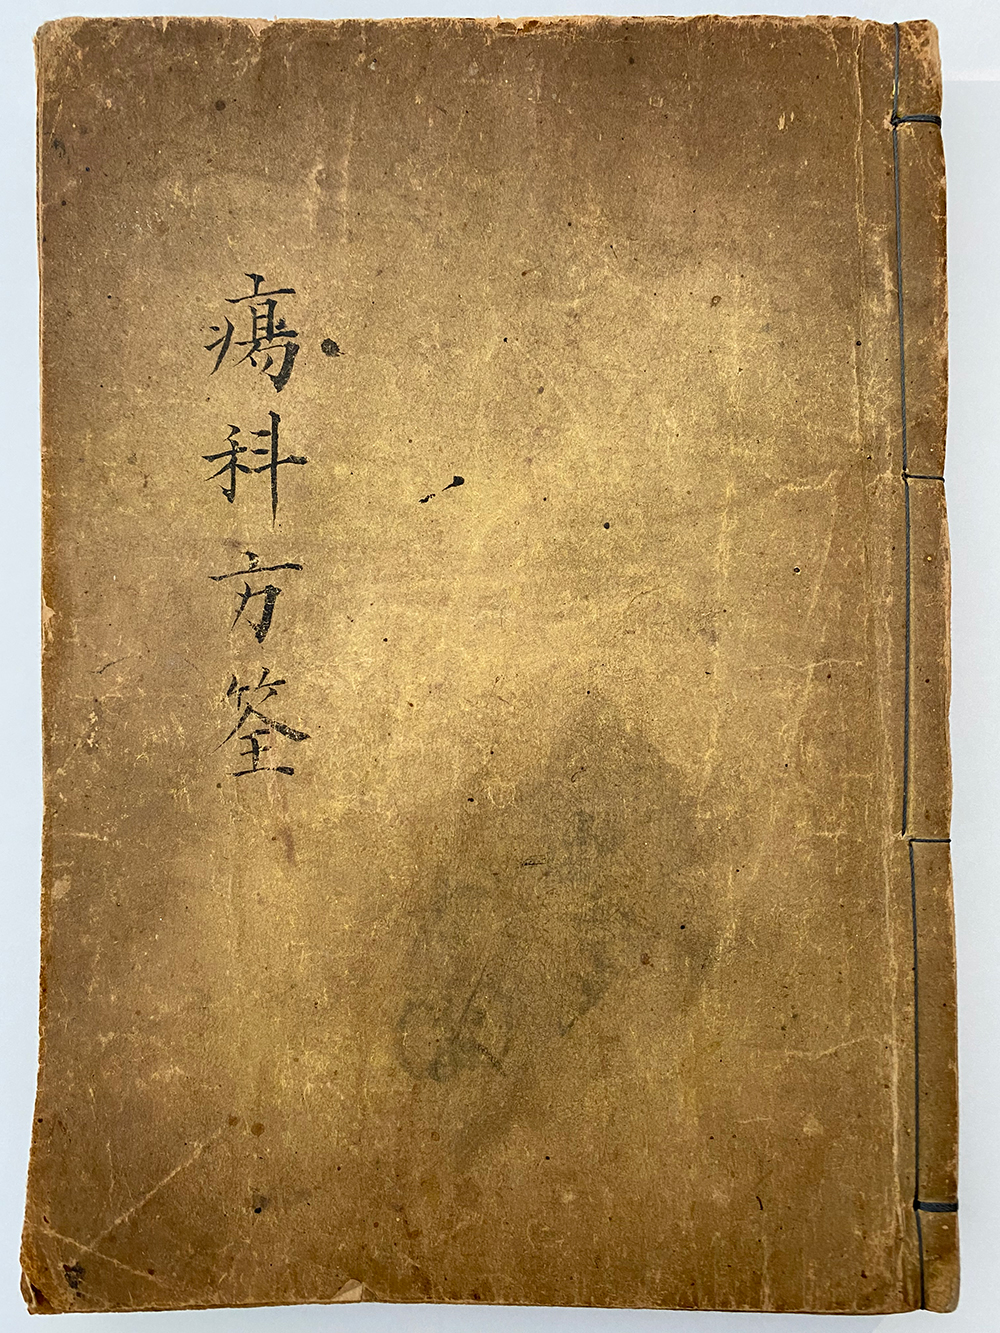 瘍科方筌